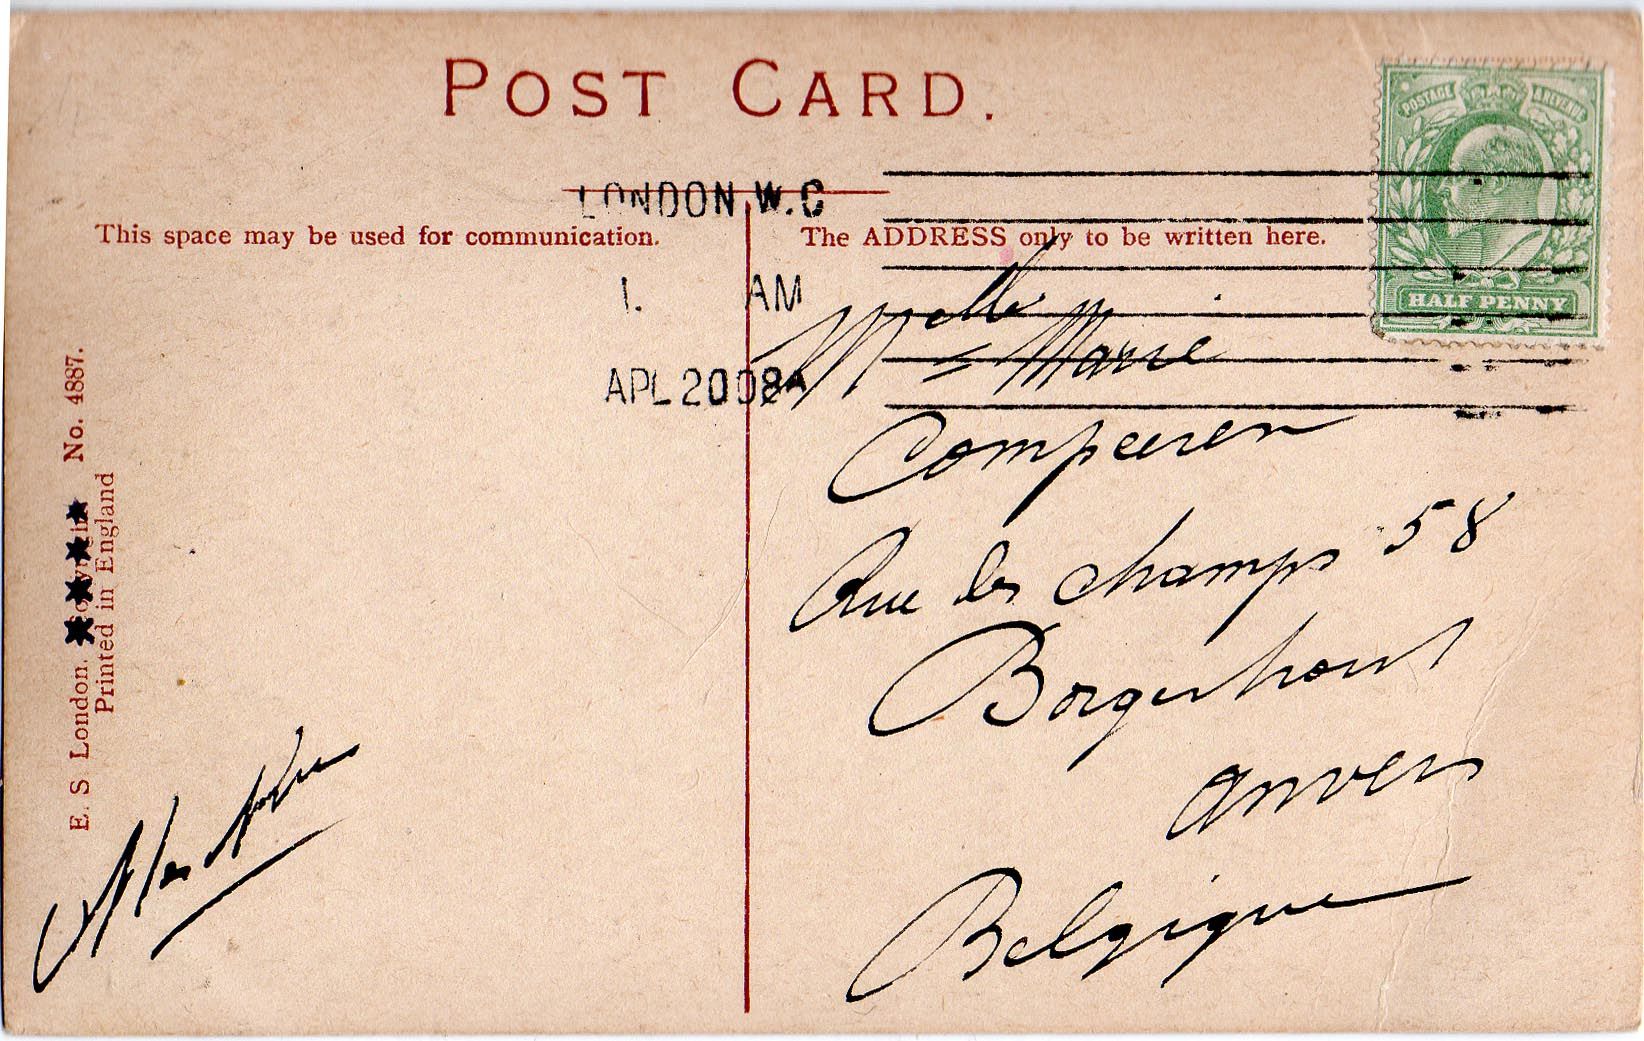 POST CARD.
POSTAGE & REVENUE
LONDON. W.C
This space may be used for communication.
The ADDRESS only to be written here.
HALF PENNY
1. AM
APL 20 08A
Melle Marie
Compeeren
Rue des champs 58
Borgerhout
Anvers
Belgique
E. S. London. Copyright No. 4887.
Printed in England
Alex